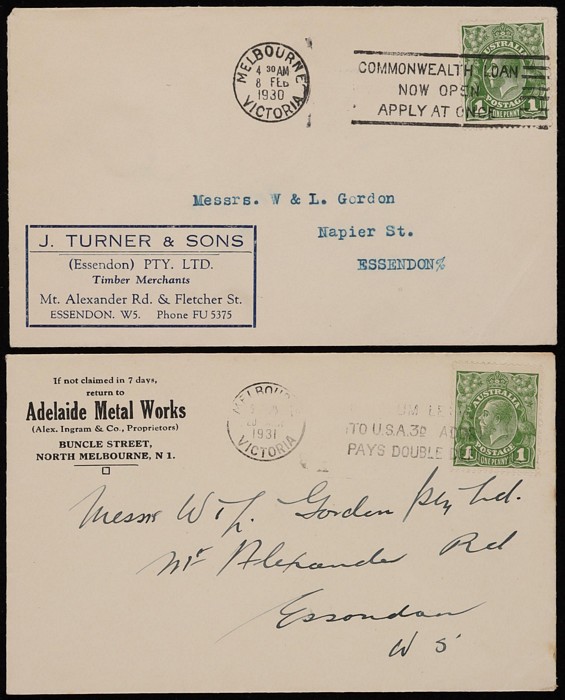 MELBOURNE
4 30 AM
8 FEB
1930
VICTORIA
COMMONWEALTH LOAN
NOW OPEN
APPLY AT ONCE
AUSTRALIA
1 POSTAGE 1
ONE PENNY
Messrs. W & L. Gordon
Napier St.
ESSENDON%
J. TURNER & SONS
(Essendon) PTY. LTD.
Timber Merchants
Mt. Alexander Rd. & Fletcher St.
ESSENDON. W5. Phone FU 5375
If not claimed in 7 days,
return to
Adelaide Metal Works
(Alex. Ingram & Co., Proprietors)
BUNCLE STREET,
NORTH MELBOURNE, N 1.
MELBOU
1931
VICTORIA
UM LE
TO U.S.A. 3D
PAYS DOUBLE
AUSTRALIA
1 POSTAGE 1
ONE PENNY
Messrs W & L. Gordon Pty Ltd.
Mt Alexander Rd
Essendon
W 5